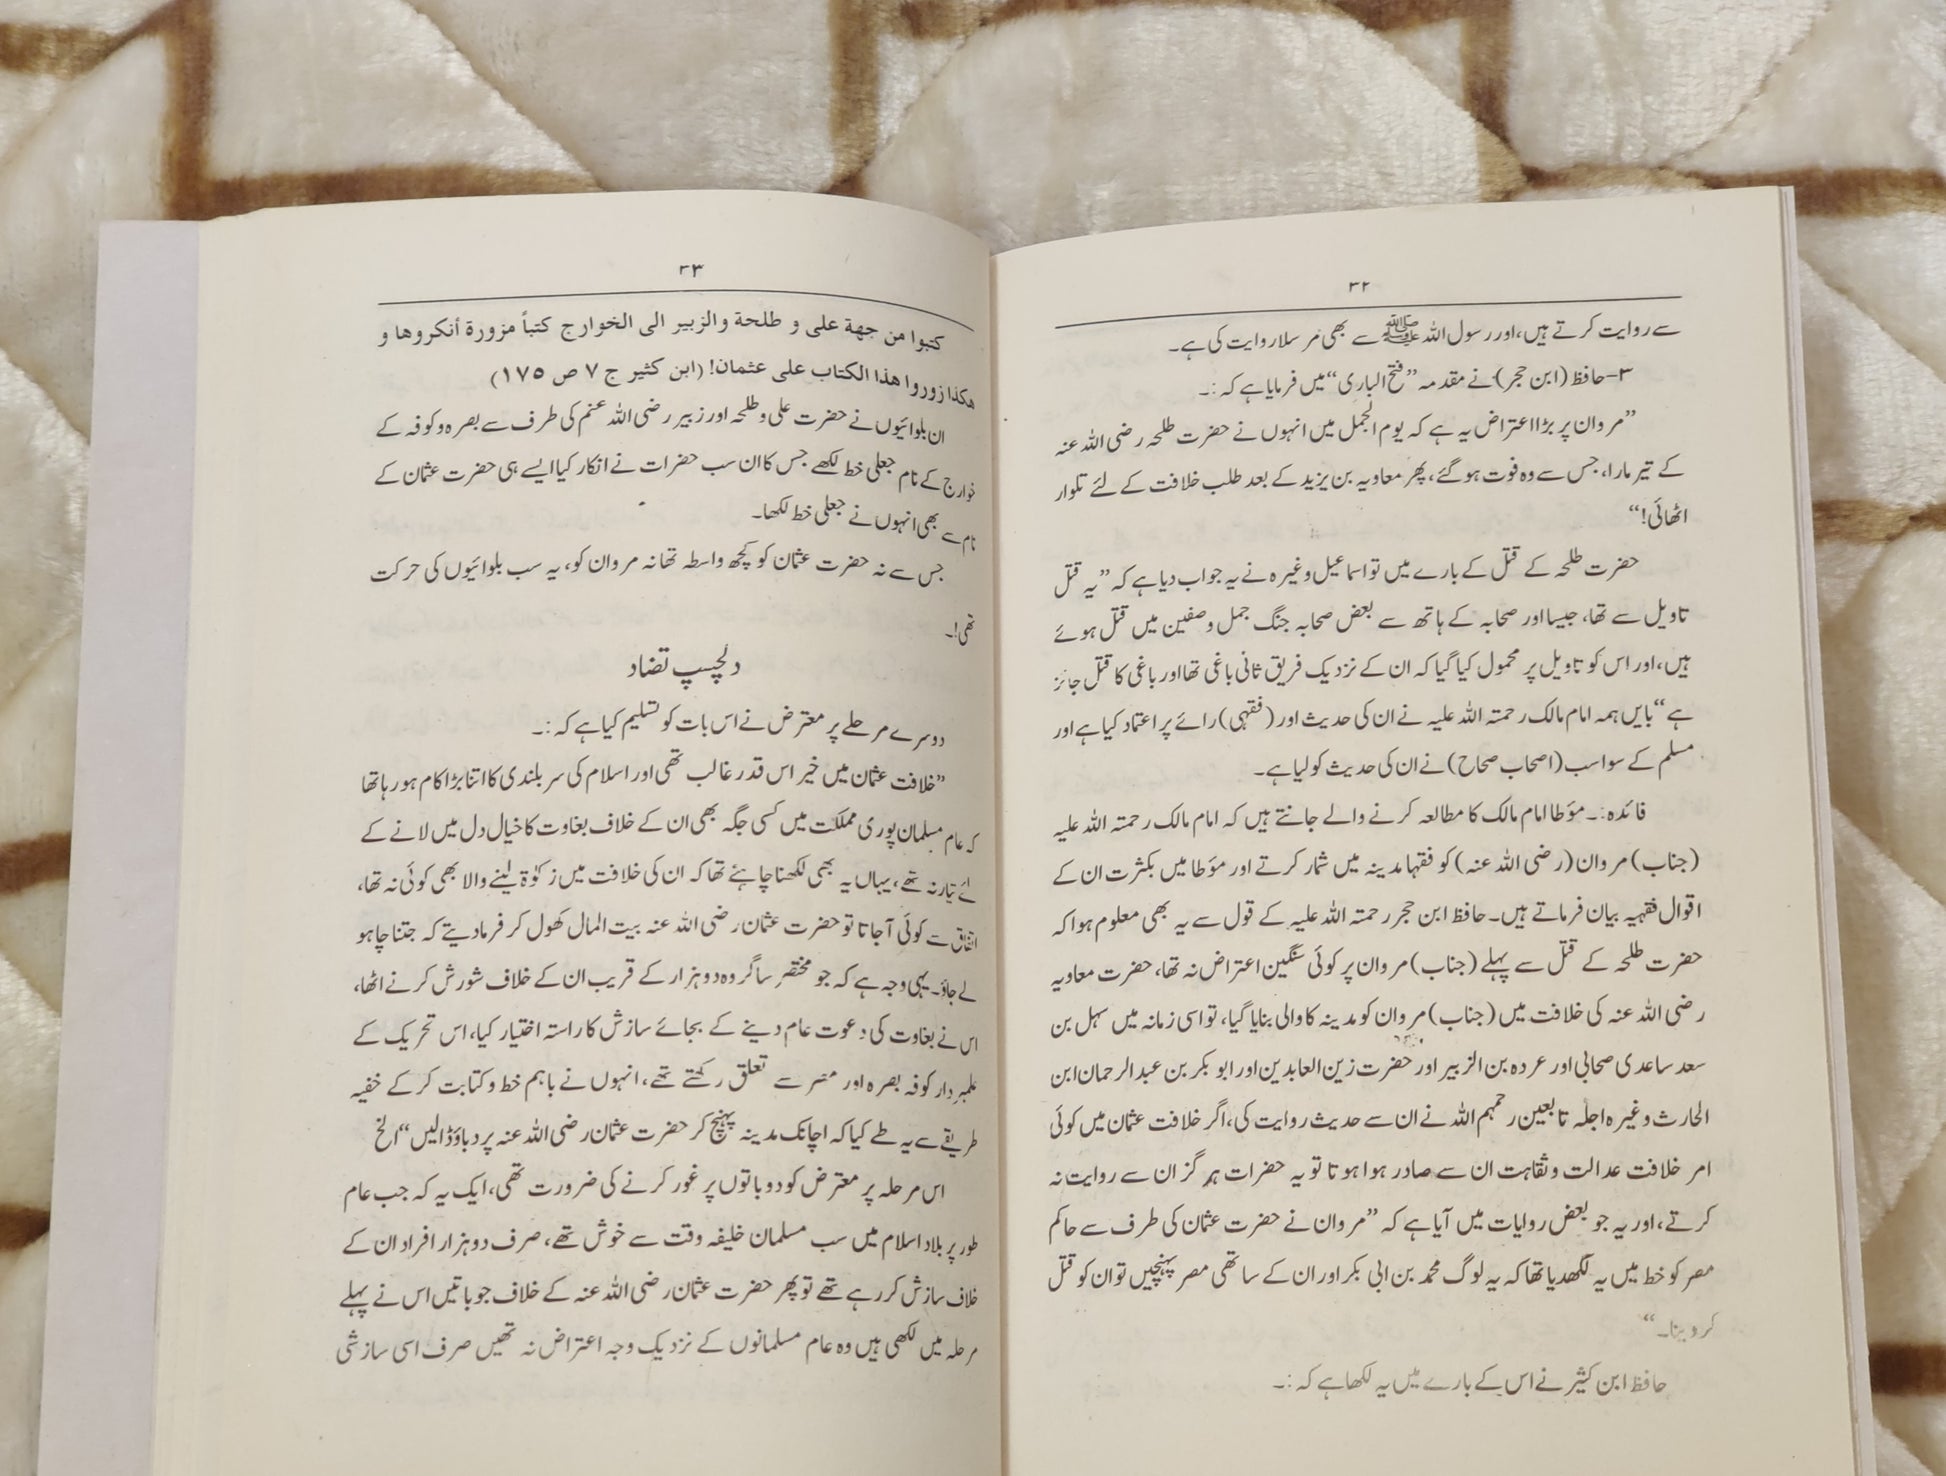 ۳۲
سے روایت کرتے ہیں، اور رسول اللہ ﷺ سے بھی مرسلا روایت کی ہے۔
۳-حافظ (ابن حجر) نے مقدمہ ”فتح الباری“ میں فرمایا ہے کہ :۔
”مروان پر بڑا اعتراض یہ ہے کہ یوم الجمل میں انہوں نے حضرت طلحہ رضی اللہ عنہ
کے تیر مارا، جس سے وہ فوت ہو گئے، پھر معاویہ بن یزید کے بعد طلب خلافت کے لئے تلوار
اٹھائی!“
حضرت طلحہ کے قتل کے بارے میں تو اسماعیل وغیرہ نے یہ جواب دیا ہے کہ ”یہ قتل
تاویل سے تھا، جیسا اور صحابہ کے ہاتھ سے بعض صحابہ جنگ جمل و صفین میں قتل ہوئے
ہیں، اور اس کو تاویل پر محمول کیا گیا کہ ان کے نزدیک فریق ثانی باغی تھا اور باغی کا قتل جائز
ہے“ بایں ہمہ امام مالک رحمتہ اللہ علیہ نے ان کی حدیث اور (فقہی) رائے پر اعتماد کیا ہے اور
مسلم کے سوا سب (اصحاب صحاح) نے ان کی حدیث کو لیا ہے۔
فائدہ:۔ مؤطا امام مالک کا مطالعہ کرنے والے جانتے ہیں کہ امام مالک رحمتہ اللہ علیہ
(جناب) مروان (رضی اللہ عنہ) کو فقہا مدینہ میں شمار کرتے اور مؤطا میں بکثرت ان کے
اقوال فقہیہ بیان فرماتے ہیں۔ حافظ ابن حجر رحمتہ اللہ علیہ کے قول سے یہ بھی معلوم ہوا کہ
حضرت طلحہ کے قتل سے پہلے (جناب) مروان پر کوئی سنگین اعتراض نہ تھا، حضرت معاویہ
رضی اللہ عنہ کی خلافت میں (جناب) مروان کو مدینہ کا والی بنایا گیا، تو اسی زمانہ میں سہل بن
سعد ساعدی صحابی اور عروہ بن الزبیر اور حضرت زین العابدین اور ابو بکر بن عبدالرحمان ابن
الحارث وغیرہ اجلہ تابعین رحمہم اللہ نے ان سے حدیث روایت کی، اگر خلافت عثمان میں کوئی
امر خلافت عدالت و ثقاہت ان سے صادر ہوا ہوتا تو یہ حضرات ہرگز ان سے روایت نہ
کرتے، اور یہ جو بعض روایات میں آیا ہے کہ ”مروان نے حضرت عثمان کی طرف سے حاکم
مصر کو خط میں یہ لکھدیا تھا کہ یہ لوگ محمد بن ابی بکر اور ان کے ساتھی مصر پہنچیں تو ان کو قتل
کر دینا۔“
حافظ ابن کثیر نے اس کے بارے میں یہ لکھا ہے کہ :۔
۳۳
كتبوا من جهة على و طلحة والزبير الى الخوارج كتباً مزورة أنكروها و
هكذا زوروا هذا الكتاب على عثمان! (ابن كثير ج ٧ ص ١٧٥)
ان بلوائیوں نے حضرت علی و طلحہ اور زبیر رضی اللہ عنہم کی طرف سے بصرہ و کوفہ کے
خوارج کے نام جعلی خط لکھے جس کا ان سب حضرات نے انکار کیا ایسے ہی حضرت عثمان کے
نام سے بھی انہوں نے جعلی خط لکھا۔
جس سے نہ حضرت عثمان کو کچھ واسطہ تھا نہ مروان کو، یہ سب بلوائیوں کی حرکت
تھی!۔
دلچسپ تضاد
دوسرے مرحلے پر معترض نے اس بات کو تسلیم کیا ہے کہ :۔
”خلافت عثمان میں خیر اس قدر غالب تھی اور اسلام کی سربلندی کا اتنا بڑا کام ہو رہا تھا
کہ عام مسلمان پوری مملکت میں کسی جگہ بھی ان کے خلاف بغاوت کا خیال دل میں لانے کے
لئے تیار نہ تھے، یہاں یہ بھی لکھنا چاہئے تھا کہ ان کی خلافت میں زکوٰۃ لینے والا بھی کوئی نہ تھا،
اتفاق سے کوئی آجاتا تو حضرت عثمان رضی اللہ عنہ بیت المال کھول کر فرما دیتے کہ جتنا چاہو
لے جاؤ۔ یہی وجہ ہے کہ جو مختصر سا گروہ دو ہزار کے قریب ان کے خلاف شورش کرنے اٹھا،
اس نے بغاوت کی دعوت عام دینے کے بجائے سازش کا راستہ اختیار کیا، اس تحریک کے
علمبردار کوفہ بصرہ اور مصر سے تعلق رکھتے تھے، انہوں نے باہم خط و کتابت کر کے خفیہ
طریقے سے یہ طے کیا کہ اچانک مدینہ پہنچ کر حضرت عثمان رضی اللہ عنہ پر دباؤ ڈالیں“ الخ
اس مرحلہ پر معترض کو دو باتوں پر غور کرنے کی ضرورت تھی، ایک یہ کہ جب عام
طور پر بلاد اسلام میں سب مسلمان خلیفہ وقت سے خوش تھے، صرف دو ہزار افراد ان کے
خلاف سازش کر رہے تھے تو پھر حضرت عثمان رضی اللہ عنہ کے خلاف جو باتیں اس نے پہلے
مرحلہ میں لکھی ہیں وہ عام مسلمانوں کے نزدیک وجہ اعتراض نہ تھیں صرف اسی سازشی